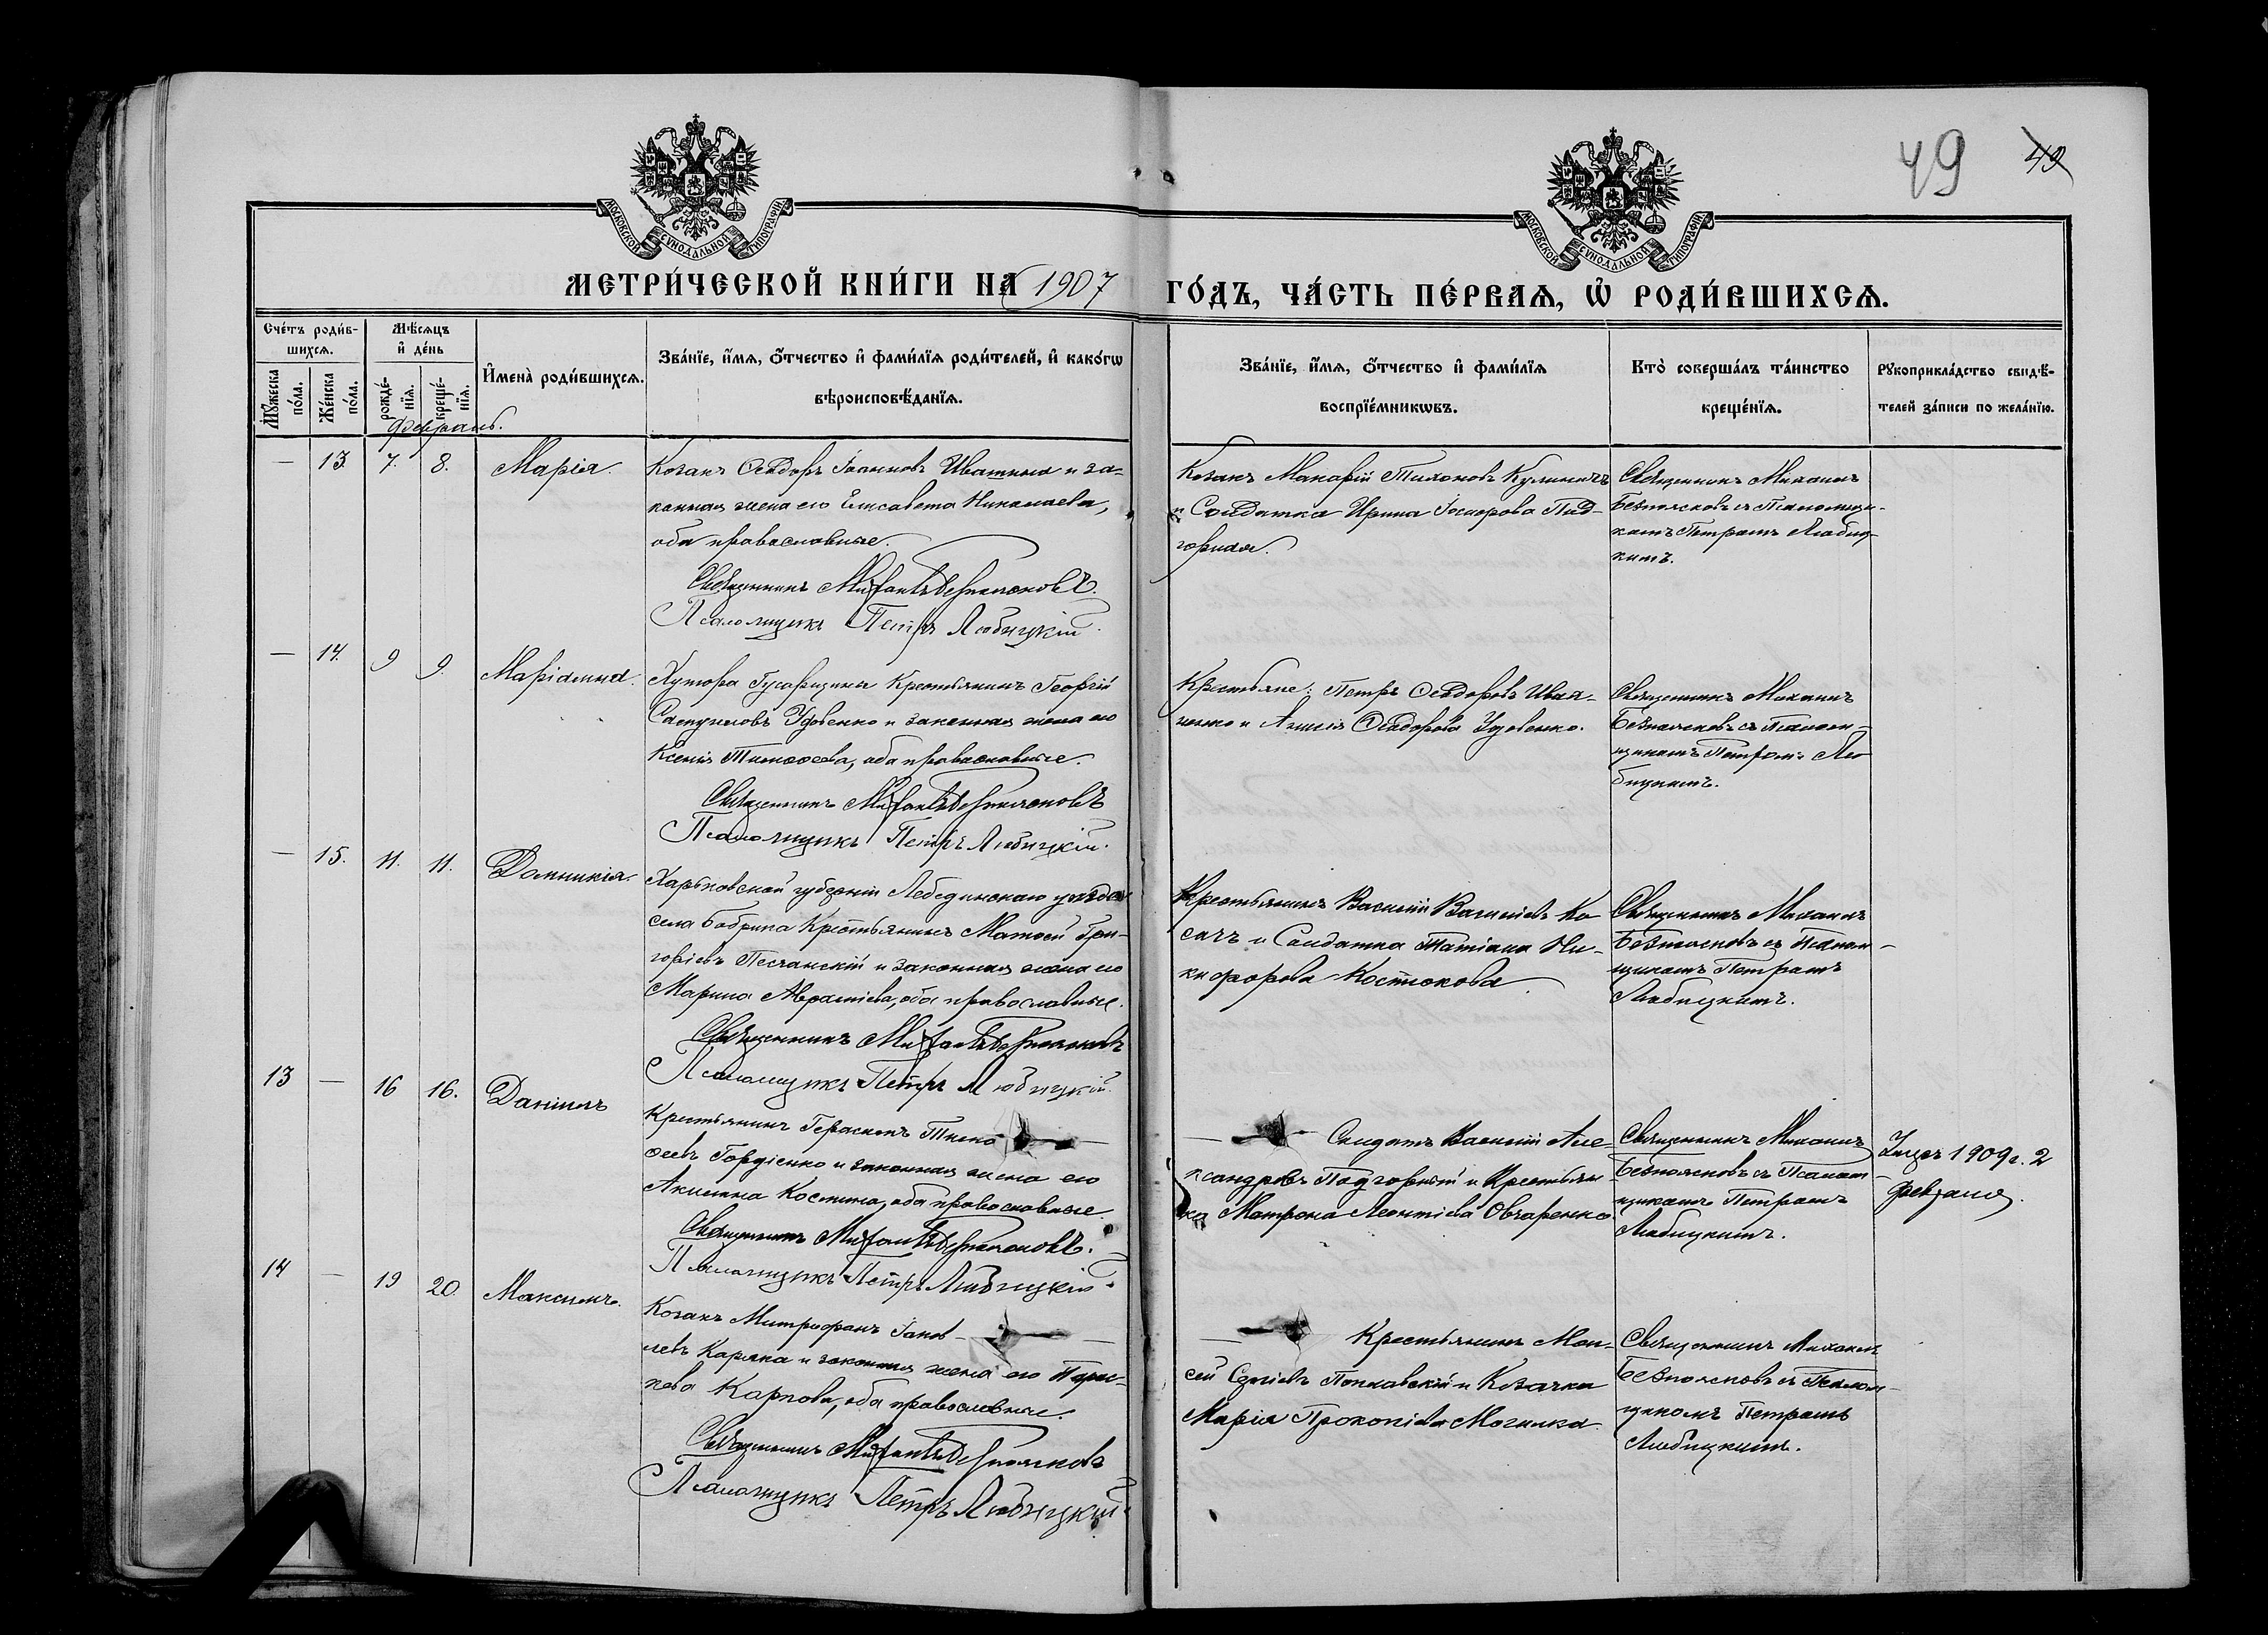 49 49
МОСКОВСКОЙ СѴНОДАЛЬНОЙ ТИПОГРАФІИ
МОСКОВСКОЙ СѴНОДАЛЬНОЙ ТИПОГРАФІИ
МЕТРИ́ЧЕСКОЙ КНИ́ГИ НА 1907
ГО́ДЪ, ЧА́СТЬ ПЕ́РВАѦ, Ѡ҆ РОДИ́ВШИХСѦ.
Сче́тъ роди́в-
шихсѧ.
Мꙋ́жеска
по́ла.
Же́нска
по́ла.
Мѣ́сѧцъ
и҆ де́нь
рожде́-
нїѧ.
креще́-
нїѧ.
И҆мена̀ роди́вшихсѧ.
Зва́нїе, и҆́мѧ, ѻ҆́тчество и҆ фами́лїѧ роди́телей, и҆ како́гѡ
вѣроисповѣ́данїѧ.
Зва́нїе, и҆́мѧ, ѻ҆́тчество и҆ фами́лїѧ
воспрїе́мникѡвъ.
Кто̀ соверша́лъ та́инство
креще́нїѧ.
Рꙋкоприкла́дство свидѣ́-
телей за́писи по жела́нїю.
Февраль.
— 13. 7. 8. Марія.
Козакъ Ѳеодоръ Іоанновъ и за-
конная жена его Елисавета Николаева,
оба православные.
Священникъ Михаилъ Безпоясковъ.
Псаломщикъ Петръ Любицкій.
Козакъ Макарій Тихоновъ Кулиничъ
и Солдатка Ирина Под-
горная.
Священникъ Михаилъ
Безпоясковъ съ Псаломщи-
комъ Петромъ Любиц-
кимъ.
— 14. 9 9. Маріамна.
Хутора Гусарщины Крестьянинъ Георгій
Удовенко и законная жена его
Ксенія Тимоѳеева, оба православные.
Священникъ Михаилъ Безпоясковъ
Псаломщикъ Петръ Любицкій.
Крестьяне: Петръ Ѳеодоровъ Иван-
ченко и Ѳеодорова Удовенко.
Священникъ Михаилъ
Безпоясковъ съ Псалом-
щикомъ Петромъ Лю-
бицкимъ.
— 15. 11. 11. Домникія.
Харьковской губерніи Лебединскаго уѣзда
села Бобрика Крестьянинъ Матѳей Гри-
горіевъ Песчанскій и законная жена его
Марина Аврамiева, оба православные.
Священникъ Михаилъ Безпоясковъ
Псаломщикъ Петръ Любицкій.
Крестьянинъ Василій Василіевъ Ко-
сачъ и Солдатка Татіана Ни-
кифорова Костюкова.
Священникъ Михаилъ
Безпоясковъ съ Псалом-
щикомъ Петромъ
Любицкимъ.
13 — 16 16. Даніилъ
Крестьянинъ Герасимъ Тимо-
ѳеевъ Гордіенко и законная жена его
Акилина Костина, оба православные.
Священникъ Михаилъ Безпоясковъ.
Псаломщикъ Петръ Любицкій.
Солдатъ Василій Але-
ксандровъ Подгорный и Крестьян-
ка Матрона Леонтіева Овчаренко.
Священникъ Михаилъ
Безпоясковъ съ Псалом-
щикомъ Петромъ
Любицкимъ.
1909 г. 2
февраля.
14 — 19 20. Максимъ.
Козакъ Митрофанъ Іаков-
левъ Каряка и законная жена его Парас-
кева Карпова, оба православные.
Священникъ Михаилъ Безпоясковъ
Псаломщикъ Петръ Любицкій.
Крестьянинъ Мои-
сей Поплавскій и Козачка
Марія Прокопіева Могилка.
Священникъ Михаилъ
Безпоясковъ съ Псалом-
щикомъ Петромъ
Любицкимъ.